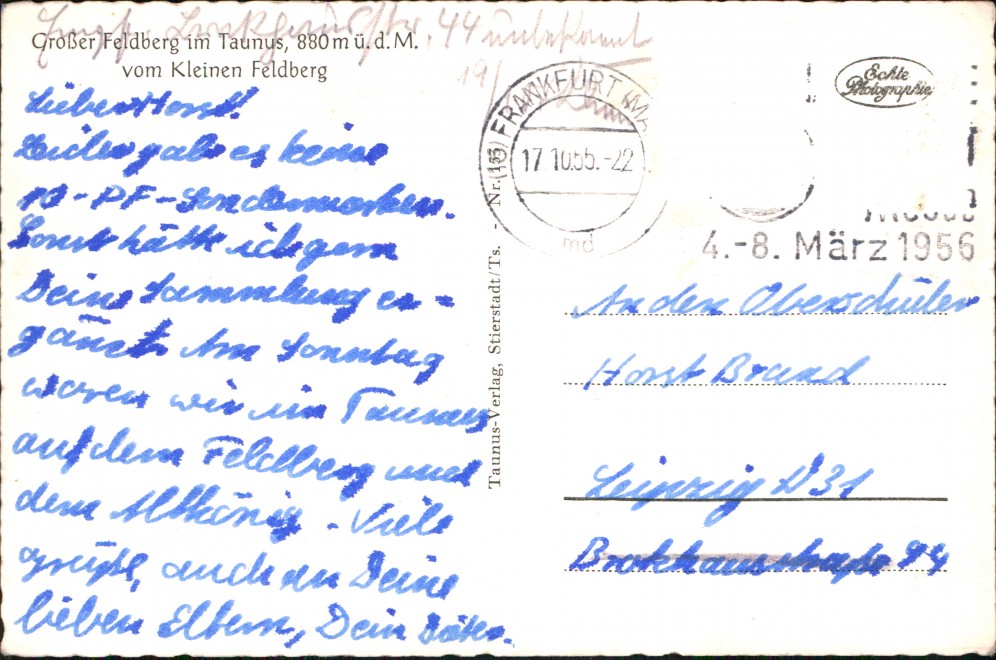 Großer Feldberg im Taunus, 880 m ü. d. M.
vom Kleinen Feldberg
44 unbekannt
19/
Echte
Photographie
(16) FRANKFURT (MA
17.10.55.-22
md
4.-8. März 1956
Lieber Horst!
Leider gab es keine
10-PF-Sondermarken.
Sonst hätte ich gern
Deine Sammlung er-
gänzt. Am Sonntag
waren wir im Taunus
auf dem Feldberg und
dem Altkönig. Viele
Grüße, auch an Deine
lieben Eltern, Dein
Taunus-Verlag, Stierstadt/Ts. - Nr. 153
An den Oberschüler
Horst Brand
Leipzig O31
Brokhausstraße 94